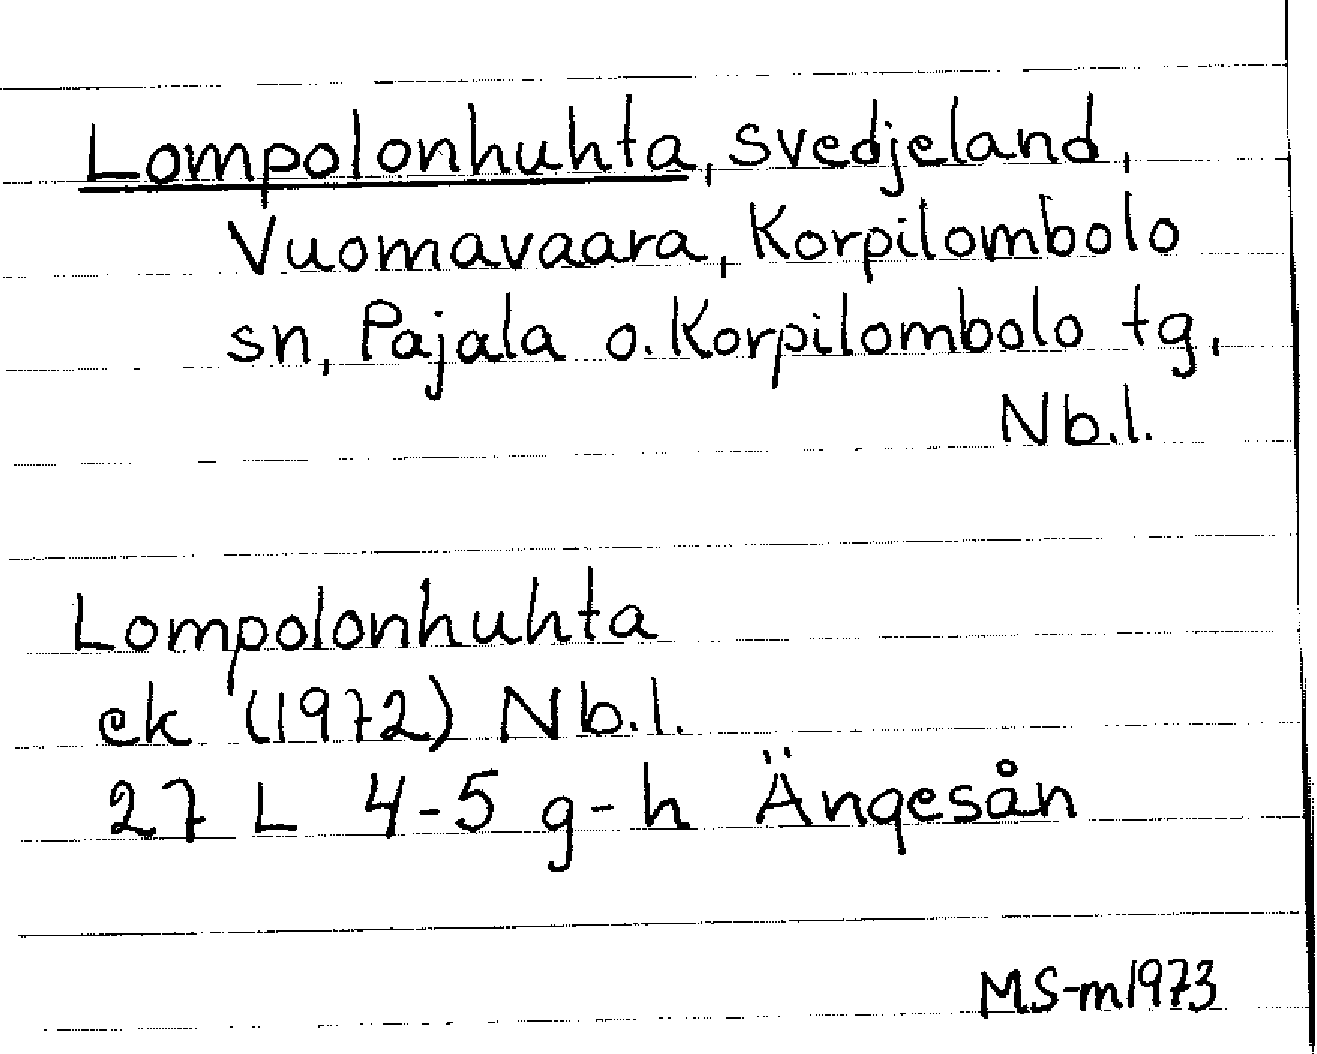 Lompolonhuhta, svedjeland,
Vuomavaara, Korpilombolo
sn, Pajala o. Korpilombolo tg,
Nb.l.
Lompolonhuhta
ek (1972) Nb.l.
27 L 4-5 g-h Ängesån
MS-m1973